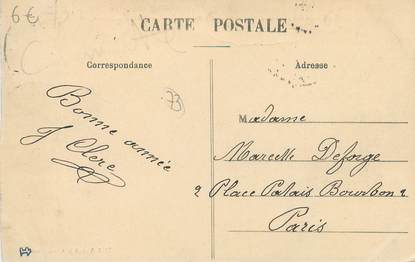 6€
CARTE POSTALE
Correspondance
Adresse
Bonne année
J Clerc
73
Madame
Marcelle Deforge
2 Place Palais Bourbon 2
Paris